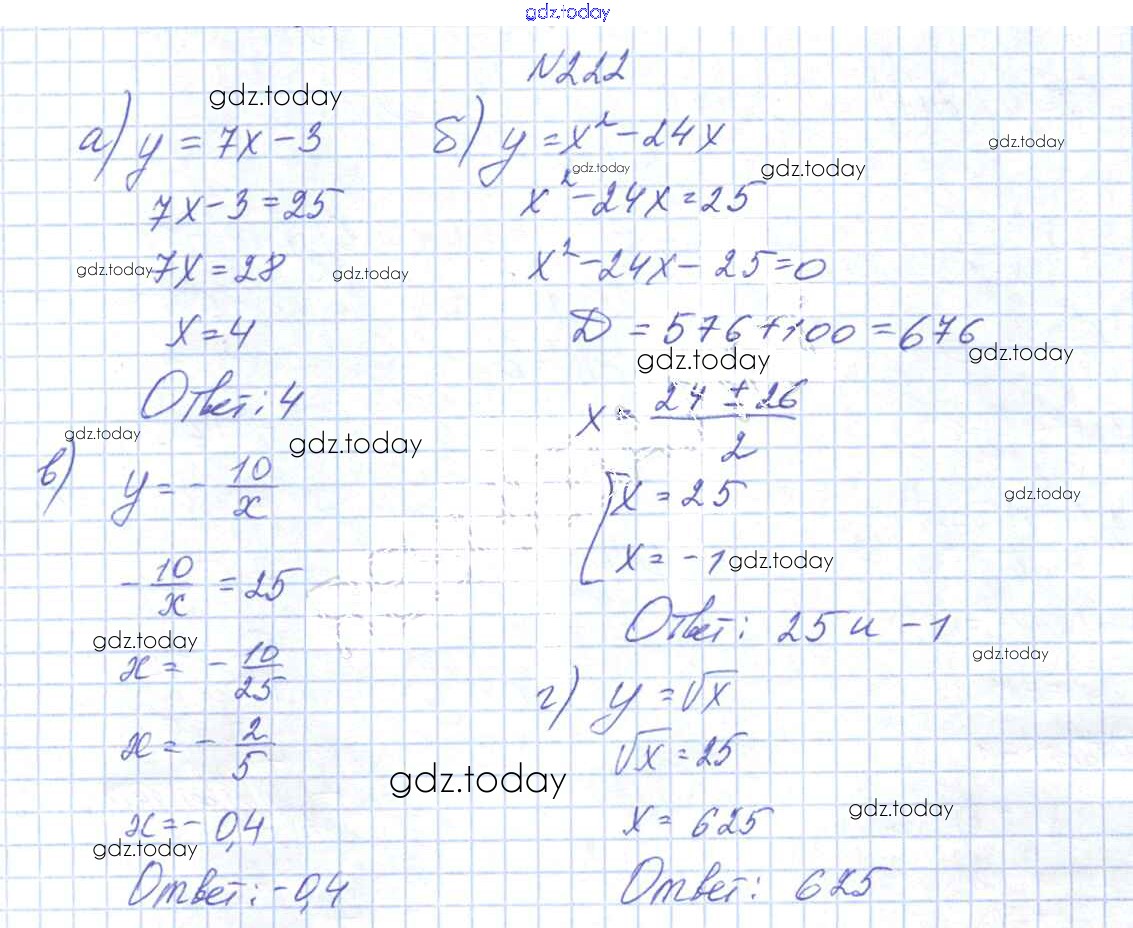 gdz.today
N222
gdz.today
а) y = 7x - 3
7x - 3 = 25
gdz.today 7x = 28 gdz.today
x = 4
Ответ: 4
б) y = x² - 24x
gdz.today
gdz.today
gdz.today
x² - 24x = 25
x² - 24x - 25 = 0
D = 576 + 100 = 676
gdz.today
gdz.today
x = (24 ± 26)/2
[x = 25
x = -1 gdz.today
gdz.today
Ответ: 25 и -1
gdz.today
gdz.today
gdz.today
в) y = - 10/x
- 10/x = 25
gdz.today
x = - 10/25
x = - 2/5
x = - 0,4
gdz.today
Ответ: -0,4
г) y = √x
√x = 25
gdz.today
x = 625
gdz.today
Ответ: 625